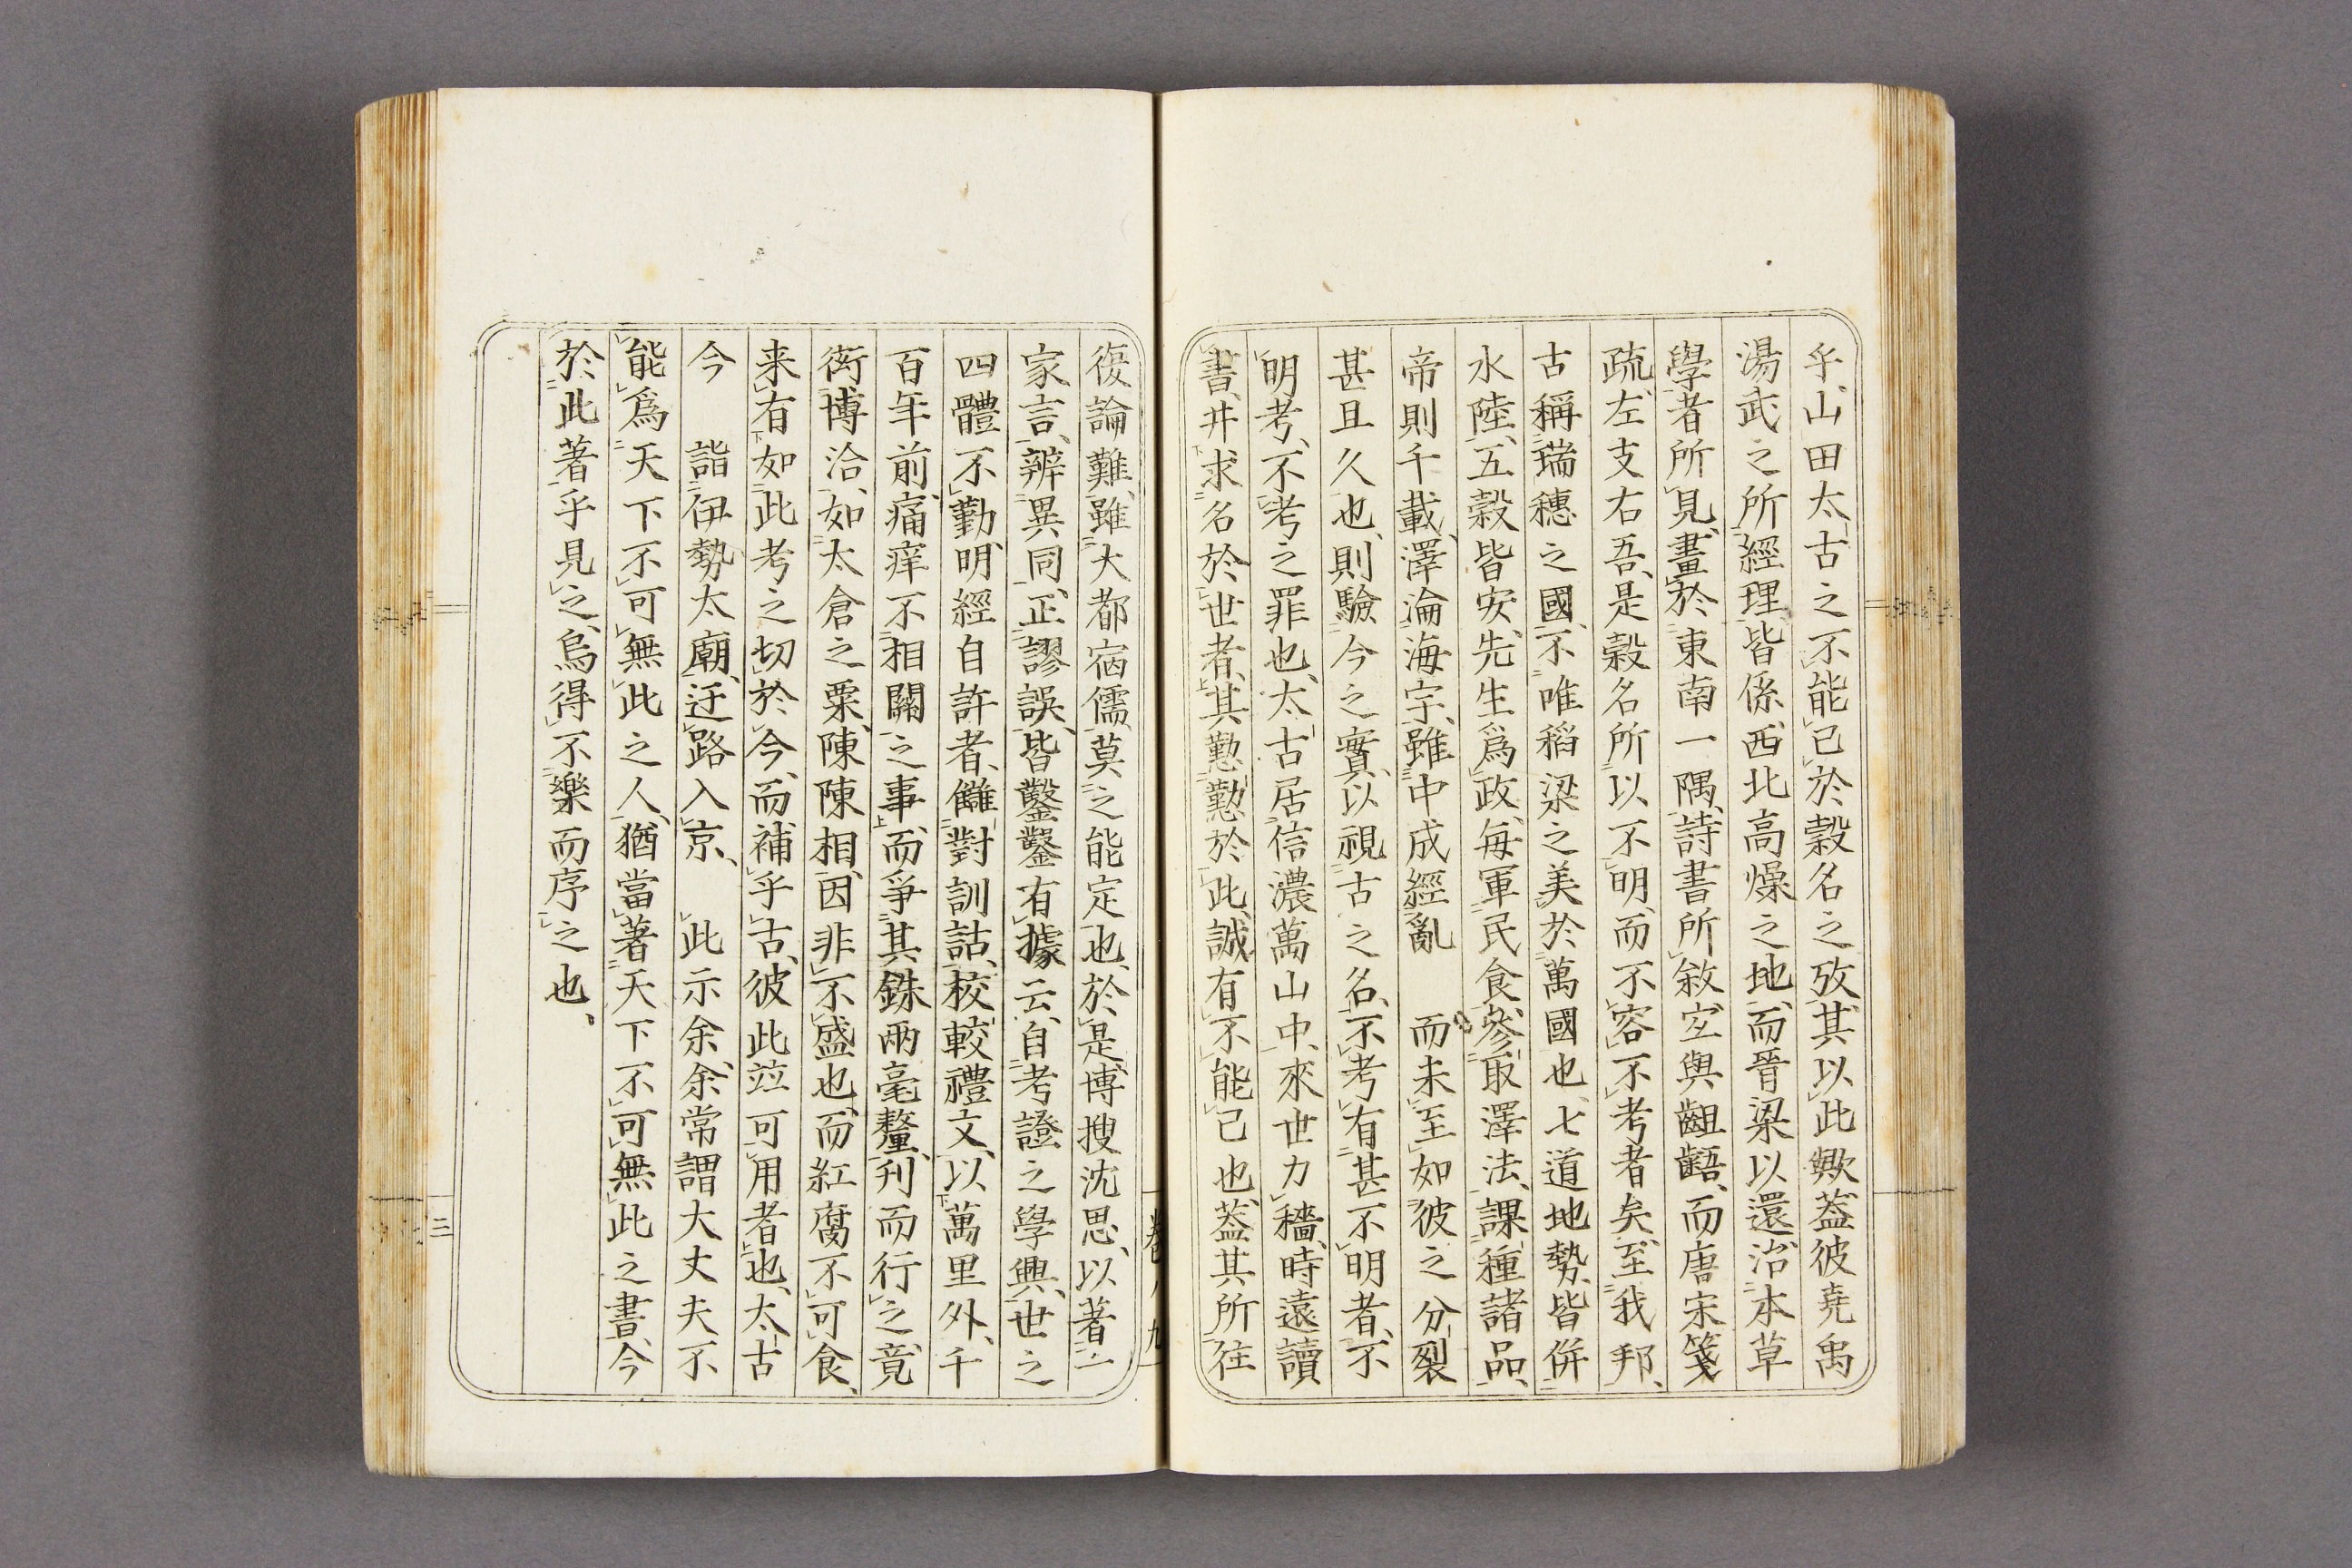 乎、山田太古之不能已於穀名之攷、其以此歟、蓋彼堯禹
湯武之所經理、皆係西北高燥之地、而晉梁以還、治本草
學者所見、畫於東南一隅、詩書所敘、定與齟齬、而唐宋箋
疏、左支右吾、是穀名所以不明、而不容不考者矣、至我邦、
古稱瑞穗之國、不唯稻梁之美於萬國也、七道地勢、皆併
水陸、五穀皆安、先生爲政、每軍民食、參取澤法、課種諸品、
帝則千載、澤淪海宇、雖中成經亂 而未至如彼之分裂
甚且久也、則驗今之實、以視古之名、不考有甚不明者、不
明考、不考之罪也、太古居信濃萬山中、來世力穡、時遠讀
書、幷求名於世者、其懃懃於此、誠有不能已也、蓋其所往
復論難、雖大都宿儒、莫之能定也、於是、博搜沈思、以著一
家言、辨異同、正謬誤、皆鑿鑿有據云、自考證之學興、世之
四體不勤、明經自許者、讎對訓詁、校較禮文、以萬里外、千
百年前、痛痒不相關之事、而爭其銖兩毫釐、刊而行之、竟
衒博洽、如太倉之粟、陳陳相因、非不盛也、而紅腐不可食、
来有如此考之切於今、而補乎古、彼此竝可用者也、太古
今 詣伊勢太廟、迂路入京、 此示余、余常謂大丈夫不
能爲天下不可無此之人、猶當著天下不可無此之書、今
於此著乎見之、烏得不樂而序之也、
三
卷八九